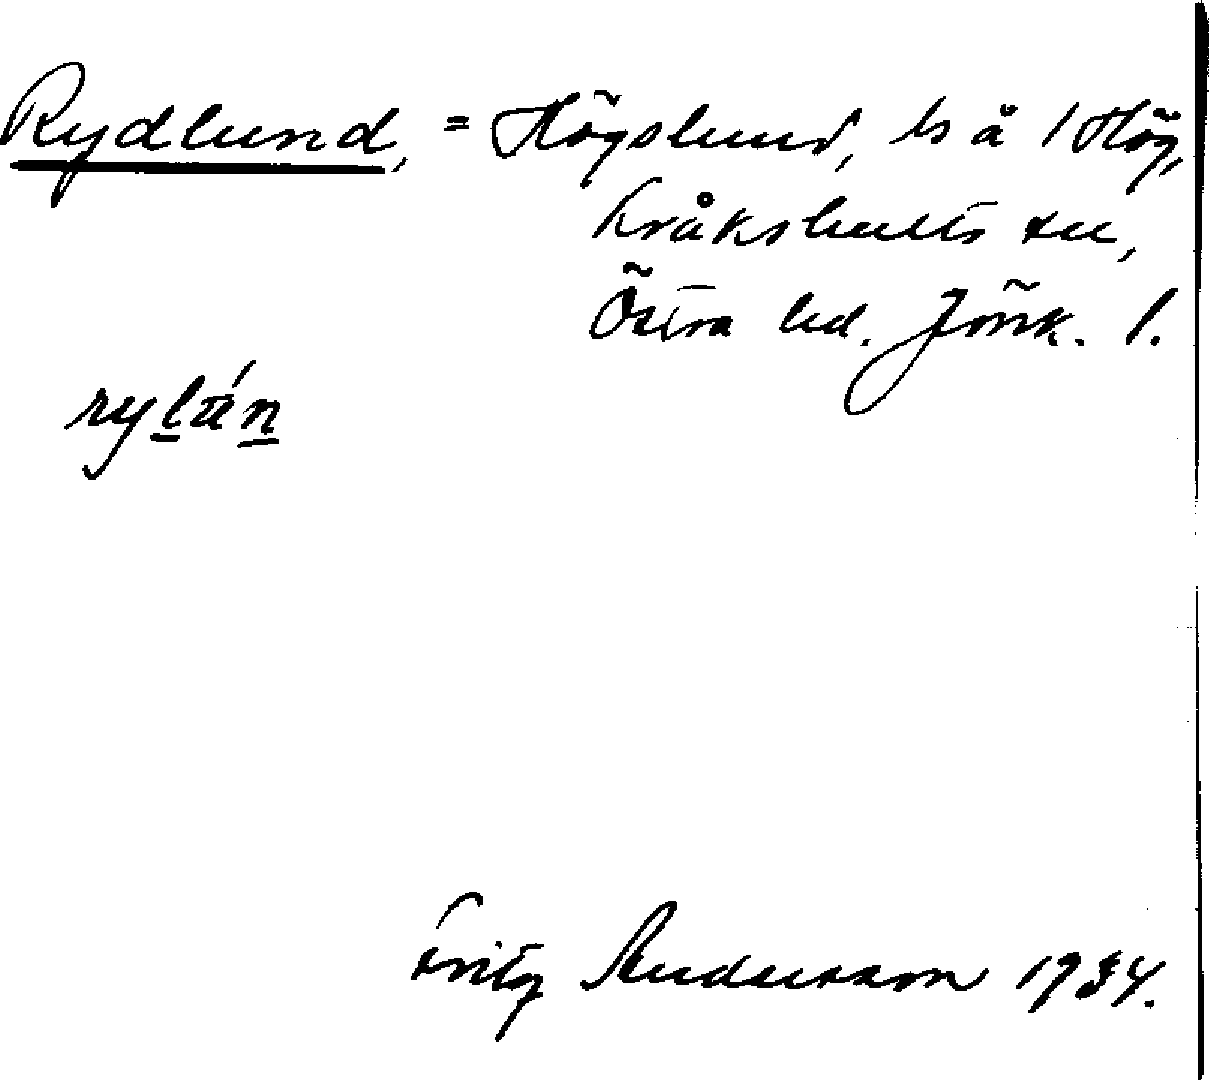 Rydlund, = Högslund, ls å 1 Hög,
Kråkshults sn,
Östra hd. Jönk. l.
rylún
Fritz Andersson 1934.